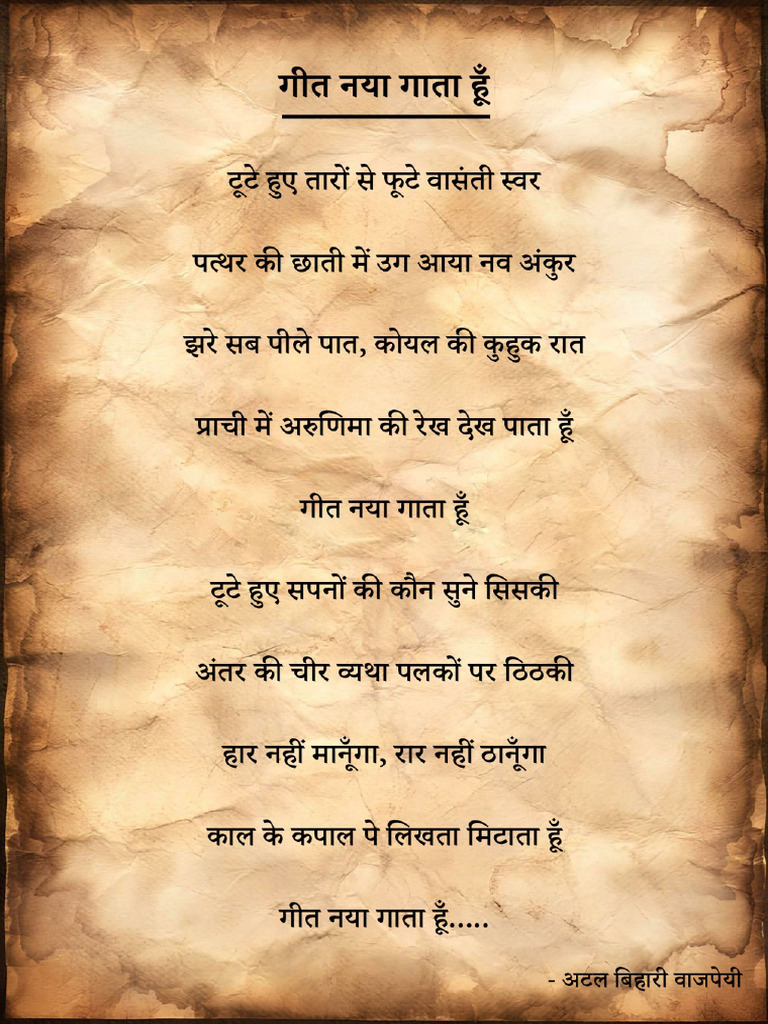 गीत नया गाता हूँ
टूटे हुए तारों से फूटे वासंती स्वर
पत्थर की छाती में उग आया नव अंकुर
झरे सब पीले पात, कोयल की कुहुक रात
प्राची में अरुणिमा की रेख देख पाता हूँ
गीत नया गाता हूँ
टूटे हुए सपनों की कौन सुने सिसकी
अंतर की चीर व्यथा पलकों पर ठिठकी
हार नहीं मानूँगा, रार नहीं ठानूँगा
काल के कपाल पे लिखता मिटाता हूँ
गीत नया गाता हूँ.....
- अटल बिहारी वाजपेयी